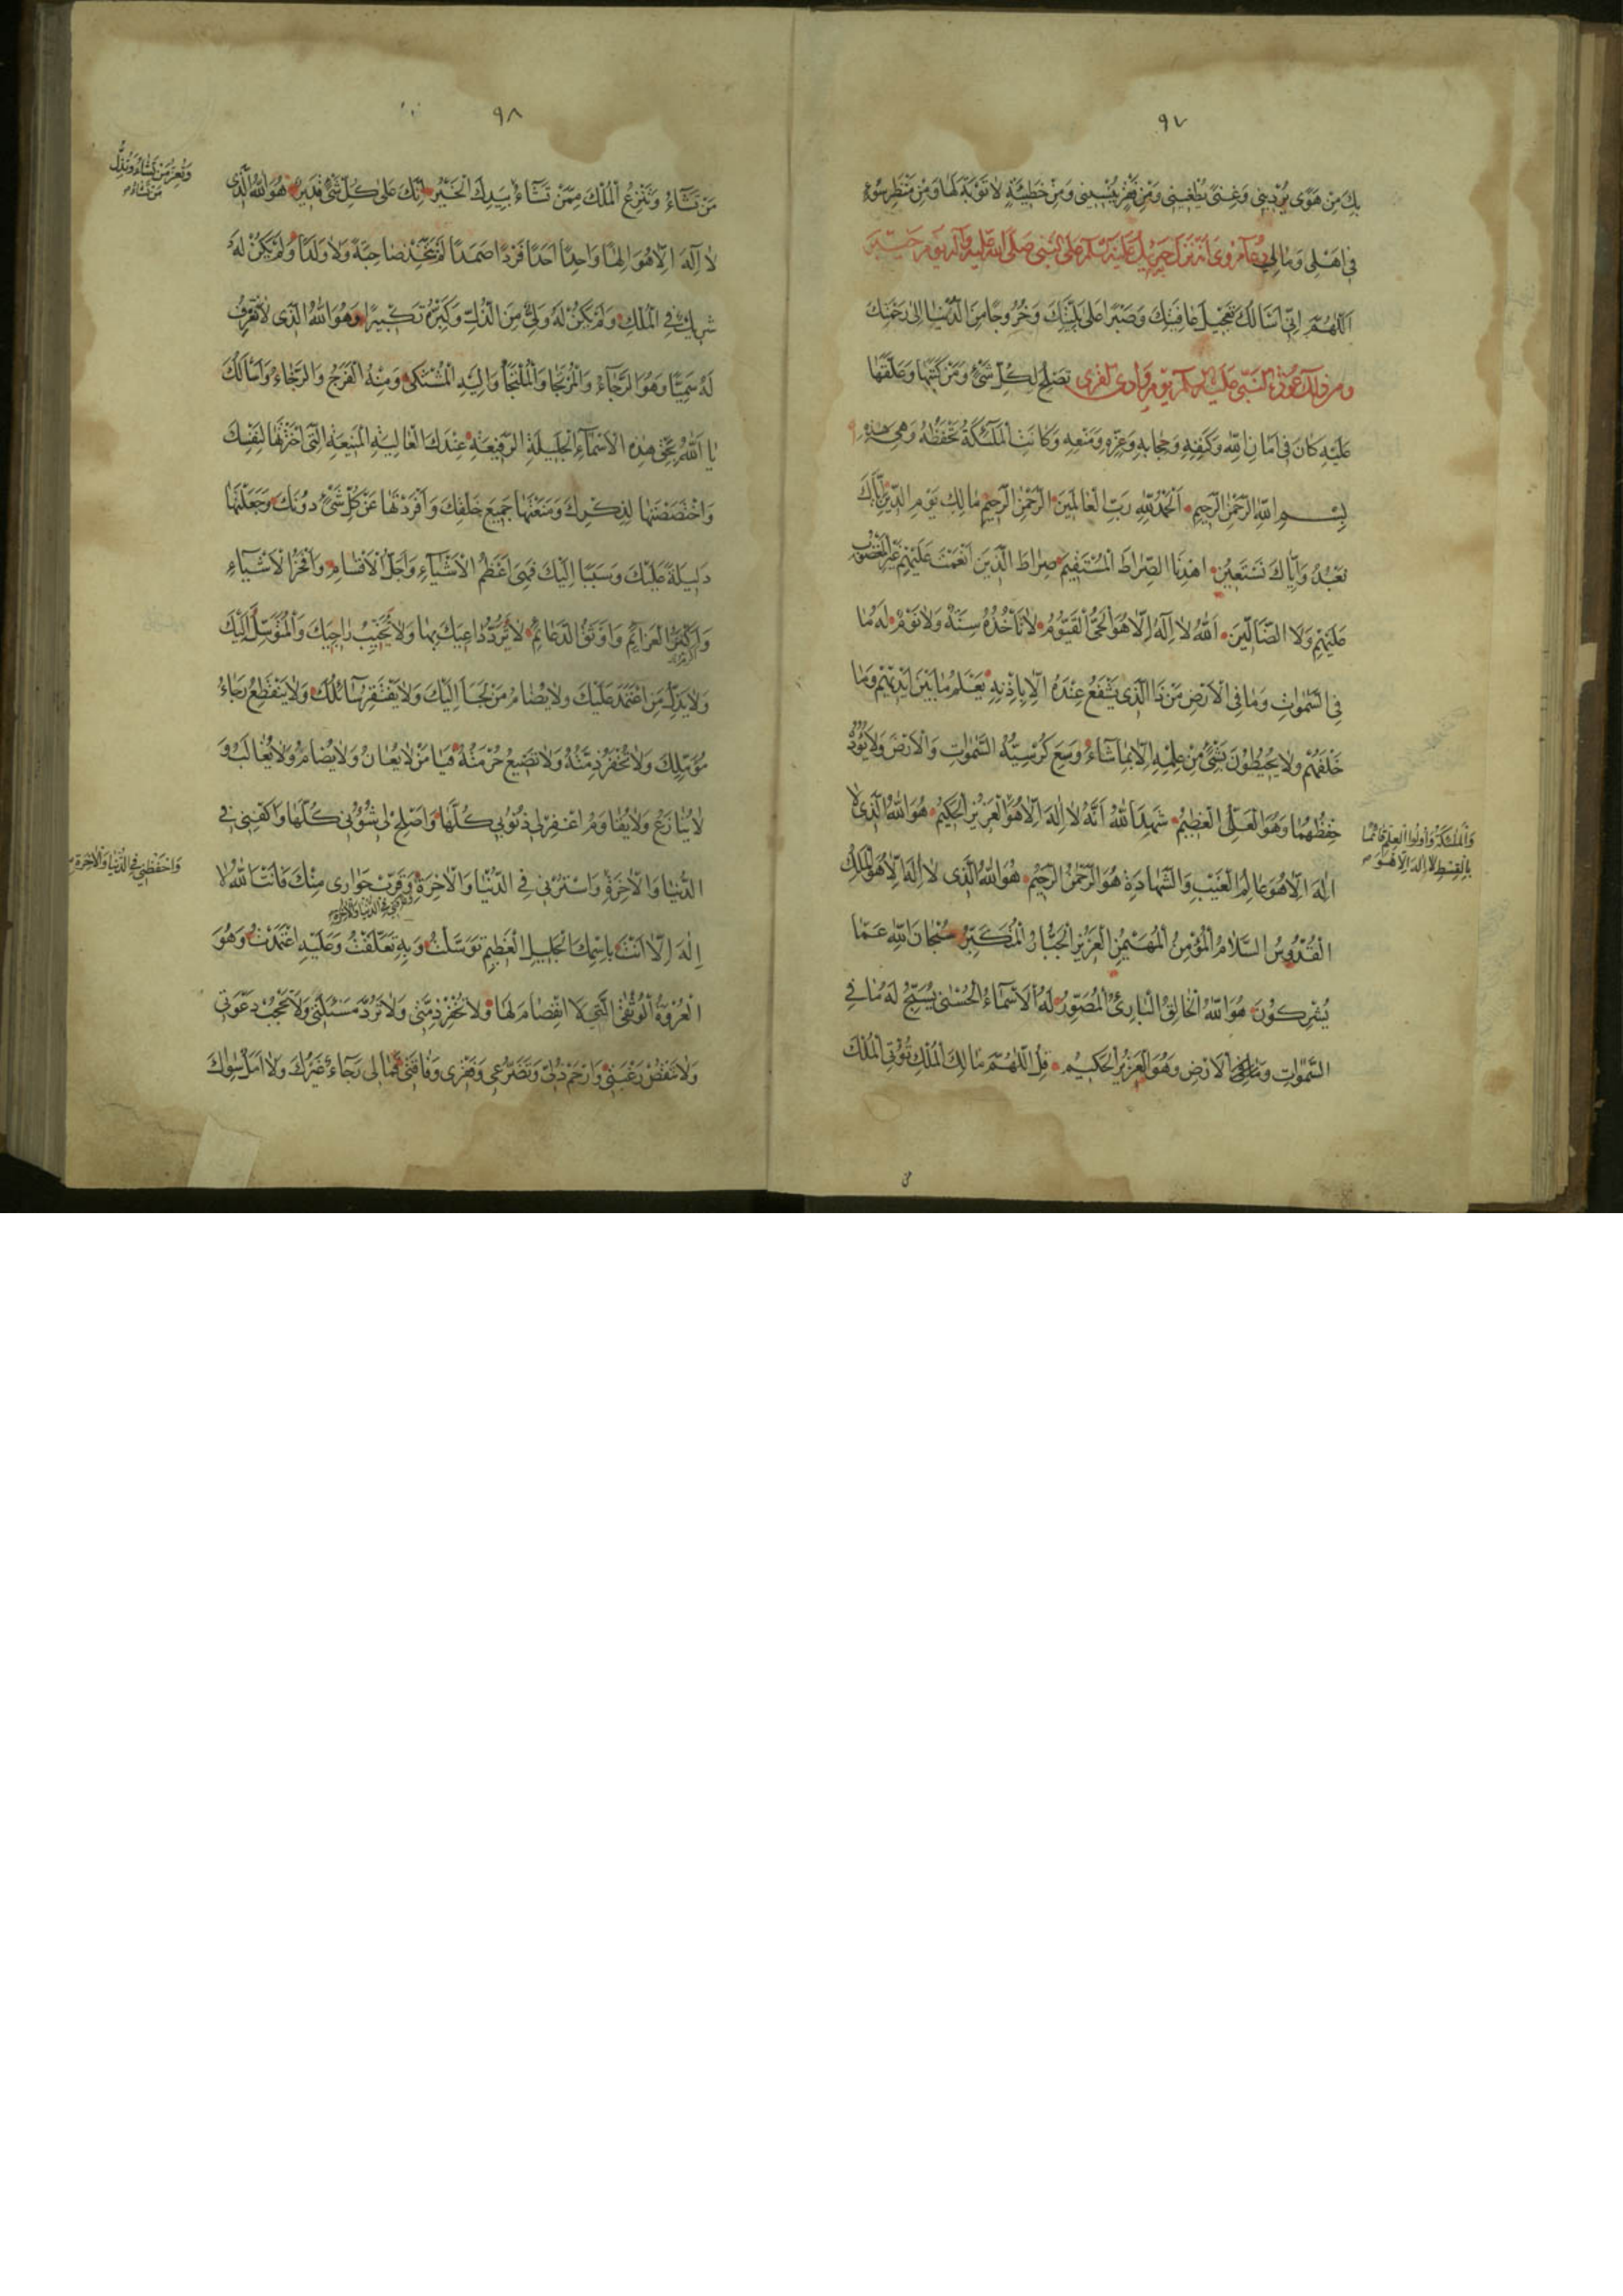 ٩٧
بِكَ مِنْ هَوًى يُرْدِينِي وَغِنًى يُطْغِينِي وَمِنْ فَقْرٍ يُنْسِينِي وَمِنْ خَطِيئَةٍ لَا تَوْبَةَ لَهَا وَمِنْ مَنْظَرِ سُوْءٍ
فِي أَهْلِي وَمَالِي دعاء روى أنه نزل جبريل عليه السلم على النبي صلى الله عليه وآله يوم حنين
اَللّٰهُمَّ اِنِّي اَسْأَلُكَ تَعْجِيلَ عَافِيَتِكَ وَصَبْرًا عَلَى بَلِيَّتِكَ وَخُرُوجًا مِنَ الدُّنْيَا اِلَى رَحْمَتِكَ
ومن ذلك عوذة النبي عليه السلم يوم وادى القرى تَصْلُحُ لِكُلِّ شَيْءٍ وَمَنْ كَتَبَهَا وَعَلَّقَهَا
عَلَيْهِ كَانَ فِي أَمَانِ اللّٰهِ وَكَنَفِهِ وَحِجَابِهِ وَعِزِّهِ وَمَنْعِهِ وَكَانَتِ الْمَلَائِكَةُ تَحْفَظُهُ وَهِيَ هَذِهِ
بِسْمِ اللّٰهِ الرَّحْمٰنِ الرَّحِيمِ اَلْحَمْدُ لِلّٰهِ رَبِّ الْعَالَمِينَ الرَّحْمٰنِ الرَّحِيمِ مَالِكِ يَوْمِ الدِّينِ اِيَّاكَ
نَعْبُدُ وَاِيَّاكَ نَسْتَعِينُ اهْدِنَا الصِّرَاطَ الْمُسْتَقِيمَ صِرَاطَ الَّذِينَ اَنْعَمْتَ عَلَيْهِمْ غَيْرِ الْمَغْضُوبِ
عَلَيْهِمْ وَلَا الضَّالِّينَ اَللّٰهُ لَا اِلٰهَ اِلَّا هُوَ الْحَيُّ الْقَيُّومُ لَا تَأْخُذُهُ سِنَةٌ وَلَا نَوْمٌ لَهُ مَا
فِي السَّمٰوَاتِ وَمَا فِي الْاَرْضِ مَنْ ذَا الَّذِي يَشْفَعُ عِنْدَهُ اِلَّا بِاِذْنِهِ يَعْلَمُ مَا بَيْنَ اَيْدِيهِمْ وَمَا
خَلْفَهُمْ وَلَا يُحِيطُونَ بِشَيْءٍ مِنْ عِلْمِهِ اِلَّا بِمَا شَاءَ وَسِعَ كُرْسِيُّهُ السَّمٰوَاتِ وَالْاَرْضَ وَلَا يَؤُدُهُ
حِفْظُهُمَا وَهُوَ الْعَلِيُّ الْعَظِيمُ شَهِدَ اللّٰهُ اَنَّهُ لَا اِلٰهَ اِلَّا هُوَ الْعَزِيزُ الْحَكِيمُ هُوَ اللّٰهُ الَّذِي لَا
وَالْمَلٰئِكَةُ وَاُولُوا الْعِلْمِ قَائِمًا
بِالْقِسْطِ لَا اِلٰهَ اِلَّا هُوَ
اِلٰهَ اِلَّا هُوَ عَالِمُ الْغَيْبِ وَالشَّهَادَةِ هُوَ الرَّحْمٰنُ الرَّحِيمُ هُوَ اللّٰهُ الَّذِي لَا اِلٰهَ اِلَّا هُوَ الْمَلِكُ
الْقُدُّوسُ السَّلَامُ الْمُؤْمِنُ الْمُهَيْمِنُ الْعَزِيزُ الْجَبَّارُ الْمُتَكَبِّرُ سُبْحَانَ اللّٰهِ عَمَّا
يُشْرِكُونَ هُوَ اللّٰهُ الْخَالِقُ الْبَارِئُ الْمُصَوِّرُ لَهُ الْاَسْمَاءُ الْحُسْنَى يُسَبِّحُ لَهُ مَا فِي
السَّمٰوَاتِ وَمَا فِي الْاَرْضِ وَهُوَ الْعَزِيزُ الْحَكِيمُ قُلِ اللّٰهُمَّ مَالِكَ الْمُلْكِ تُؤْتِي الْمُلْكَ
٩٨
مَنْ تَشَاءُ وَتَنْزِعُ الْمُلْكَ مِمَّنْ تَشَاءُ بِيَدِكَ الْخَيْرُ اِنَّكَ عَلَى كُلِّ شَيْءٍ قَدِيرٌ هُوَ اللّٰهُ الَّذِي
وَتُعِزُّ مَنْ تَشَاءُ وَتُذِلُّ
مَنْ تَشَاءُ
لَا اِلٰهَ اِلَّا هُوَ اِلٰهًا وَاحِدًا اَحَدًا فَرْدًا صَمَدًا لَمْ يَتَّخِذْ صَاحِبَةً وَلَا وَلَدًا وَلَمْ يَكُنْ لَهُ
شَرِيكٌ فِي الْمُلْكِ وَلَمْ يَكُنْ لَهُ وَلِيٌّ مِنَ الذُّلِّ وَكَبِّرْهُ تَكْبِيرًا وَهُوَ اللّٰهُ الَّذِي لَا نَعْرِفُ
لَهُ سَمِيًّا وَهُوَ الرَّجَاءُ وَالْمُرْتَجَا وَالْمُلْتَجَأُ وَاِلَيْهِ الْمُشْتَكَى وَمِنْهُ الْفَرَجُ وَالرَّخَاءُ وَاَسْأَلُكَ
يَا اَللّٰهُ بِحَقِّ هَذِهِ الْاَسْمَاءِ الْجَلِيلَةِ الرَّفِيعَةِ عِنْدَكَ الْعَالِيَةِ الْمَنِيعَةِ الَّتِي اخْتَرْتَهَا لِنَفْسِكَ
وَاخْتَصَصْتَهَا لِذِكْرِكَ وَمَنَعْتَهَا جَمِيعَ خَلْقِكَ وَاَفْرَدْتَهَا عَنْ كُلِّ شَيْءٍ دُونَكَ وَجَعَلْتَهَا
دَلِيلَةً عَلَيْكَ وَسَبَبًا اِلَيْكَ فَهِيَ اَعْظَمُ الْاَشْيَاءِ وَاَجَلُّ الْاَقْسَامِ وَاَفْخَرُ الْاَشْيَاءِ
وَاَكْبَرُ الْعَزَائِمِ وَاَوْثَقُ الدَّعَائِمِ لَا تَرُدُّ دَاعِيَكَ بِهَا وَلَا تُخَيِّبُ رَاجِيَكَ وَالْمُتَوَسِّلَ اِلَيْكَ
وَلَا يَذِلُّ مَنِ اعْتَمَدَ عَلَيْكَ وَلَا يُضَامُ مَنْ لَجَأَ اِلَيْكَ وَلَا يَفْتَقِرُ سَائِلُكَ وَلَا يَنْقَطِعُ رَجَاءُ
مُؤَمِّلِكَ وَلَا تُخْفَرُ ذِمَّتُهُ وَلَا تَضِيعُ حُرْمَتُهُ فَيَا مَنْ لَا يُعَانُ وَلَا يُضَامُ وَلَا يُغَالَبُ وَ
لَا يُنَازَعُ وَلَا يُقَاوَمُ اغْفِرْ لِي ذُنُوبِي كُلَّهَا وَاَصْلِحْ لِي شُؤُونِي كُلَّهَا وَاكْفِنِي فِي
وَاحْفَظْنِي فِي الدُّنْيَا وَالْاٰخِرَةِ
الدُّنْيَا وَالْاٰخِرَةِ وَاسْتُرْنِي فِي الدُّنْيَا وَالْاٰخِرَةِ وَقَرِّبْ جِوَارِي مِنْكَ فَاَنْتَ اللّٰهُ لَا
اِلٰهَ اِلَّا اَنْتَ بِاسْمِكَ الْجَلِيلِ الْعَظِيمِ تَوَسَّلْتُ وَبِهِ تَعَلَّقْتُ وَعَلَيْهِ اعْتَمَدْتُ وَهُوَ
الْعُرْوَةُ الْوُثْقَى الَّتِي لَا انْفِصَامَ لَهَا وَلَا تُخْفِرْ ذِمَّتِي وَلَا تَرُدَّ مَسْئَلَتِي وَلَا تَحْجُبْ دَعْوَتِي
وَلَا تَنْقُصْ رَغْبَتِي وَارْحَمْ ذُلِّي وَتَضَرُّعِي وَفَقْرِي وَفَاقَتِي فَمَا لِي رَجَاءٌ غَيْرُكَ وَلَا اَمَلٌ سِوَاكَ